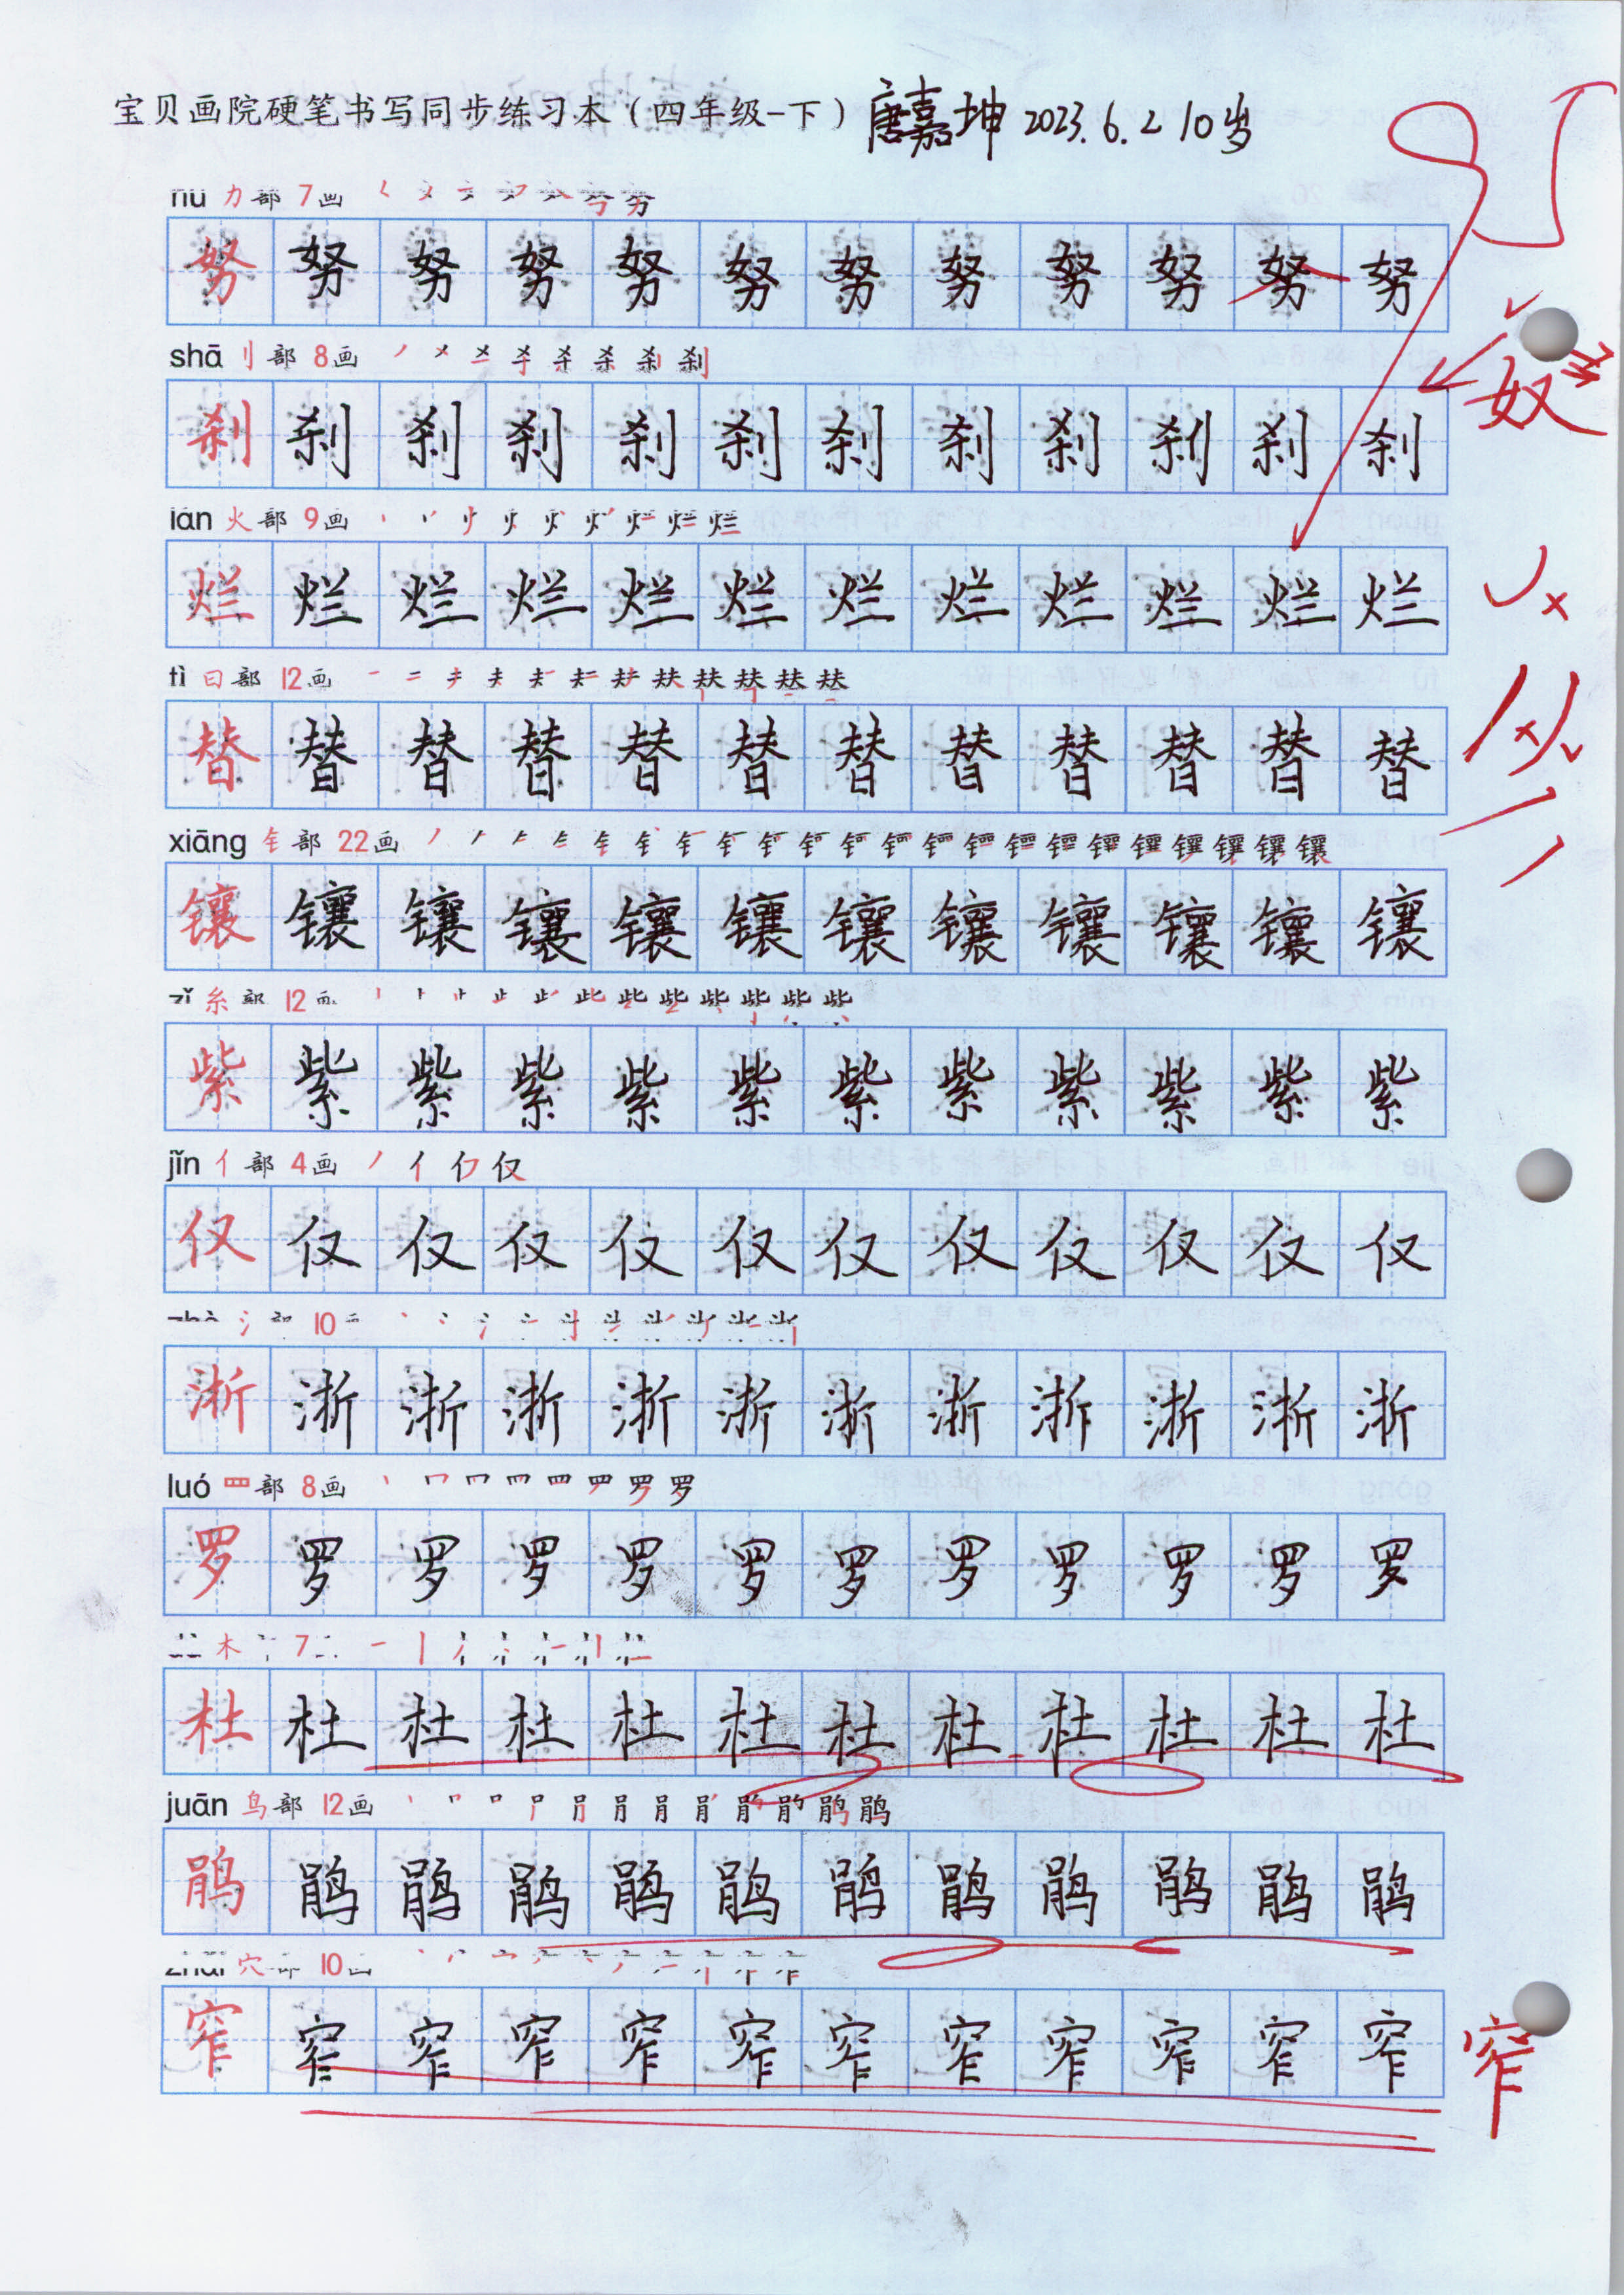 宝贝画院硬笔书写同步练习本（四年级-下）唐嘉坤 2023.6.2 10岁
nǔ 力部 7画
努 努 努 努 努 努 努 努 努 努 努 努
shā 刂部 8画
刹 刹 刹 刹 刹 刹 刹 刹 刹 刹 刹 刹
奴
làn 火部 9画
烂 烂 烂 烂 烂 烂 烂 烂 烂 烂 烂 烂
tì 日部 12画
替 替 替 替 替 替 替 替 替 替 替 替
xiāng 钅部 22画
镶 镶 镶 镶 镶 镶 镶 镶 镶 镶 镶 镶
zǐ 糸部 12画
紫 紫 紫 紫 紫 紫 紫 紫 紫 紫 紫 紫
jǐn 亻部 4画
仅 仅 仅 仅 仅 仅 仅 仅 仅 仅 仅 仅
氵部 10画
浙 浙 浙 浙 浙 浙 浙 浙 浙 浙 浙 浙
luó 罒部 8画
罗 罗 罗 罗 罗 罗 罗 罗 罗 罗 罗 罗
木 7
杜 杜 杜 杜 杜 杜 杜 杜 杜 杜 杜 杜
juān 鸟部 12画
鹃 鹃 鹃 鹃 鹃 鹃 鹃 鹃 鹃 鹃 鹃 鹃
zhǎi 穴部 10画
窄 窄 窄 窄 窄 窄 窄 窄 窄 窄 窄 窄 窄